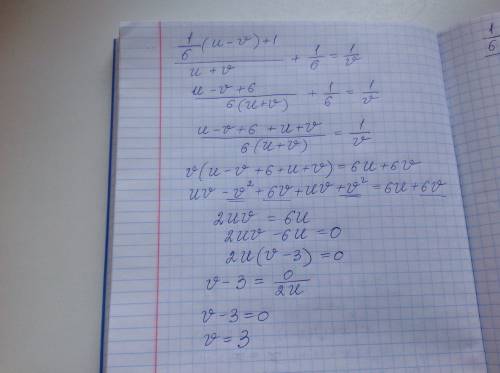 (1/6(u-v)+1)/(u+v) + 1/6 = 1/v
(u-v+6)/(6(u+v)) + 1/6 = 1/v
(u-v+6+u+v)/(6(u+v)) = 1/v
v(u-v+6+u+v)=6u+6v
uv-v²+6v+uv+v²=6u+6v
2uv = 6u
2uv-6u=0
2u(v-3)=0
v-3=0/2u
v-3=0
v=3
1/6